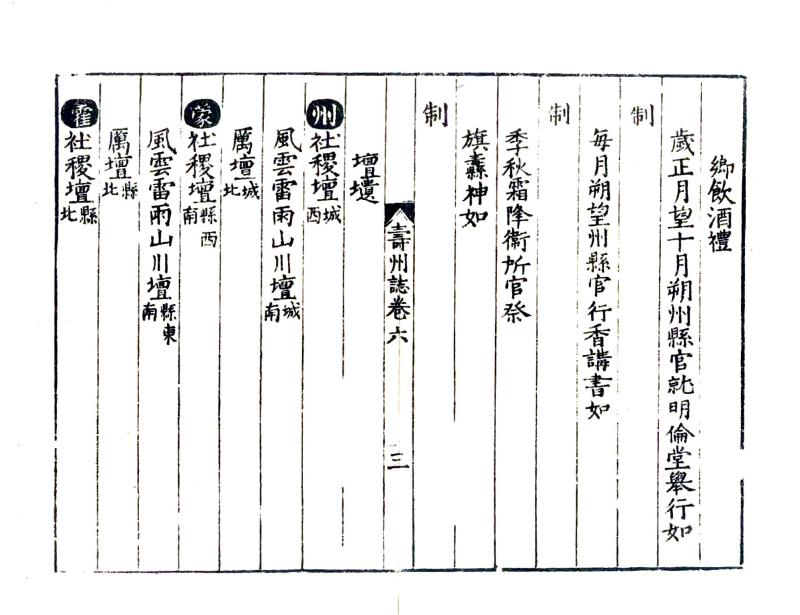 鄉飲酒禮
歲正月望十月朔州縣官就明倫堂舉行如
制
每月朔望州縣官行香講書如
制
季秋霜降衞所官祭
旗纛神如
制
壽州誌卷六
三
壇壝
州社稷壇城西
風雲雷雨山川壇城南
厲壇城北
蒙社稷壇縣西南
風雲雷雨山川壇縣東南
厲壇縣北
霍社稷壇縣北